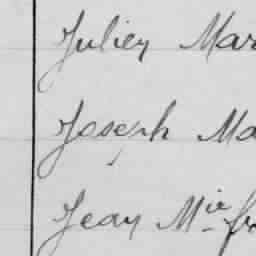 Julien Mar
Joseph Ma
Jean Mie fr